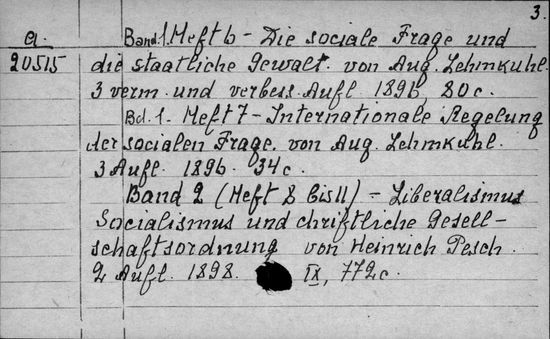 3.
a.
20515
Band 1. Heft 6 - Die sociale Frage und
die staatliche Gewalt. von Aug. Lehmkuhl.
3 verm. und verbess. Aufl. 1896. 80 c.
Bd. 1. Heft 7 - Internationale Regelung
der socialen Frage. von Aug. Lehmkuhl.
3 Aufl. 1896. 34 c.
Band 2 (Heft 8 bis 11) - Liberalismus
Socialismus und christliche Gesell-
schaftsordnung von Heinrich Pesch.
2 Aufl. 1898. IX, 772 c.